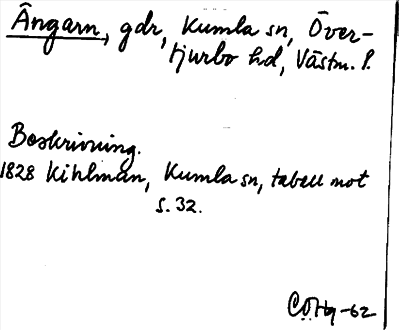 Ängarn, gdr, Kumla sn, Över-
tjurbo hd, Västm. l.
Beskrivning.
1828 Kihlman, Kumla sn, tabell mot
s. 32.
-62